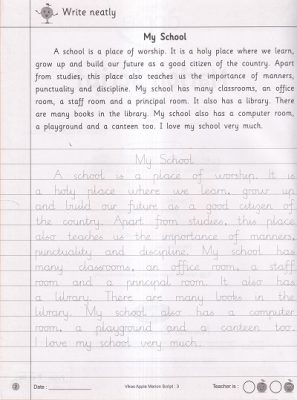 Write neatly
My School
A school is a place of worship. It is a holy place where we learn,
grow up and build our future as a good citizen of the country. Apart
from studies, this place also teaches us the importance of manners,
punctuality and discipline. My school has many classrooms, an office
room, a staff room and a principal room. It also has a library. There
are many books in the library. My school also has a computer room,
a playground and a canteen too. I love my school very much.
My School
A school is a place of worship. It is
a holy place where we learn, grow up
and build our future as a good citizen of
the country. Apart from studies, this place
also teaches us the importance of manners,
punctuality and discipline. My school has
many classrooms, an office room, a staff
room and a principal room. It also has
a library. There are many books in the
library. My school also has a computer
room, a playground and a canteen too.
I love my school very much.
2 Date : Vikas Apple Marion Script - 3 Teacher is :